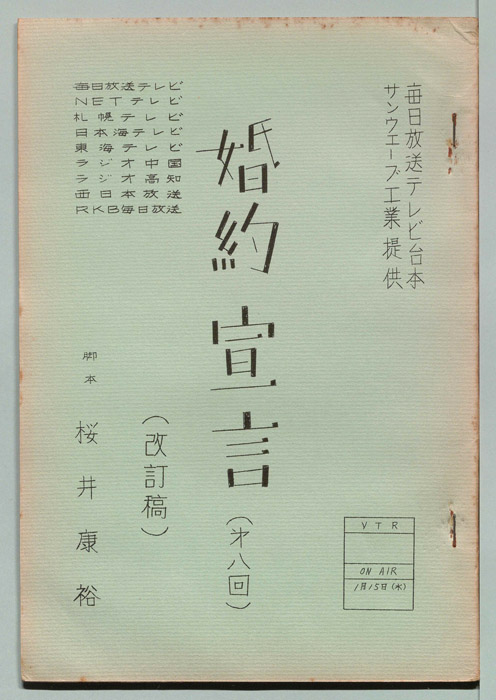 毎日放送テレビ台本
サンウエーブ工業提供
婚約宣言
(第八回)
(改訂稿)
毎日放送テレビ
NETテレビ
札幌テレビ
日本海テレビ
東海テレビ
ラジオ中国
ラジオ高知
西日本放送
RKB毎日放送
脚本
桜井康裕
VTR
ON AIR
1月15日(水)